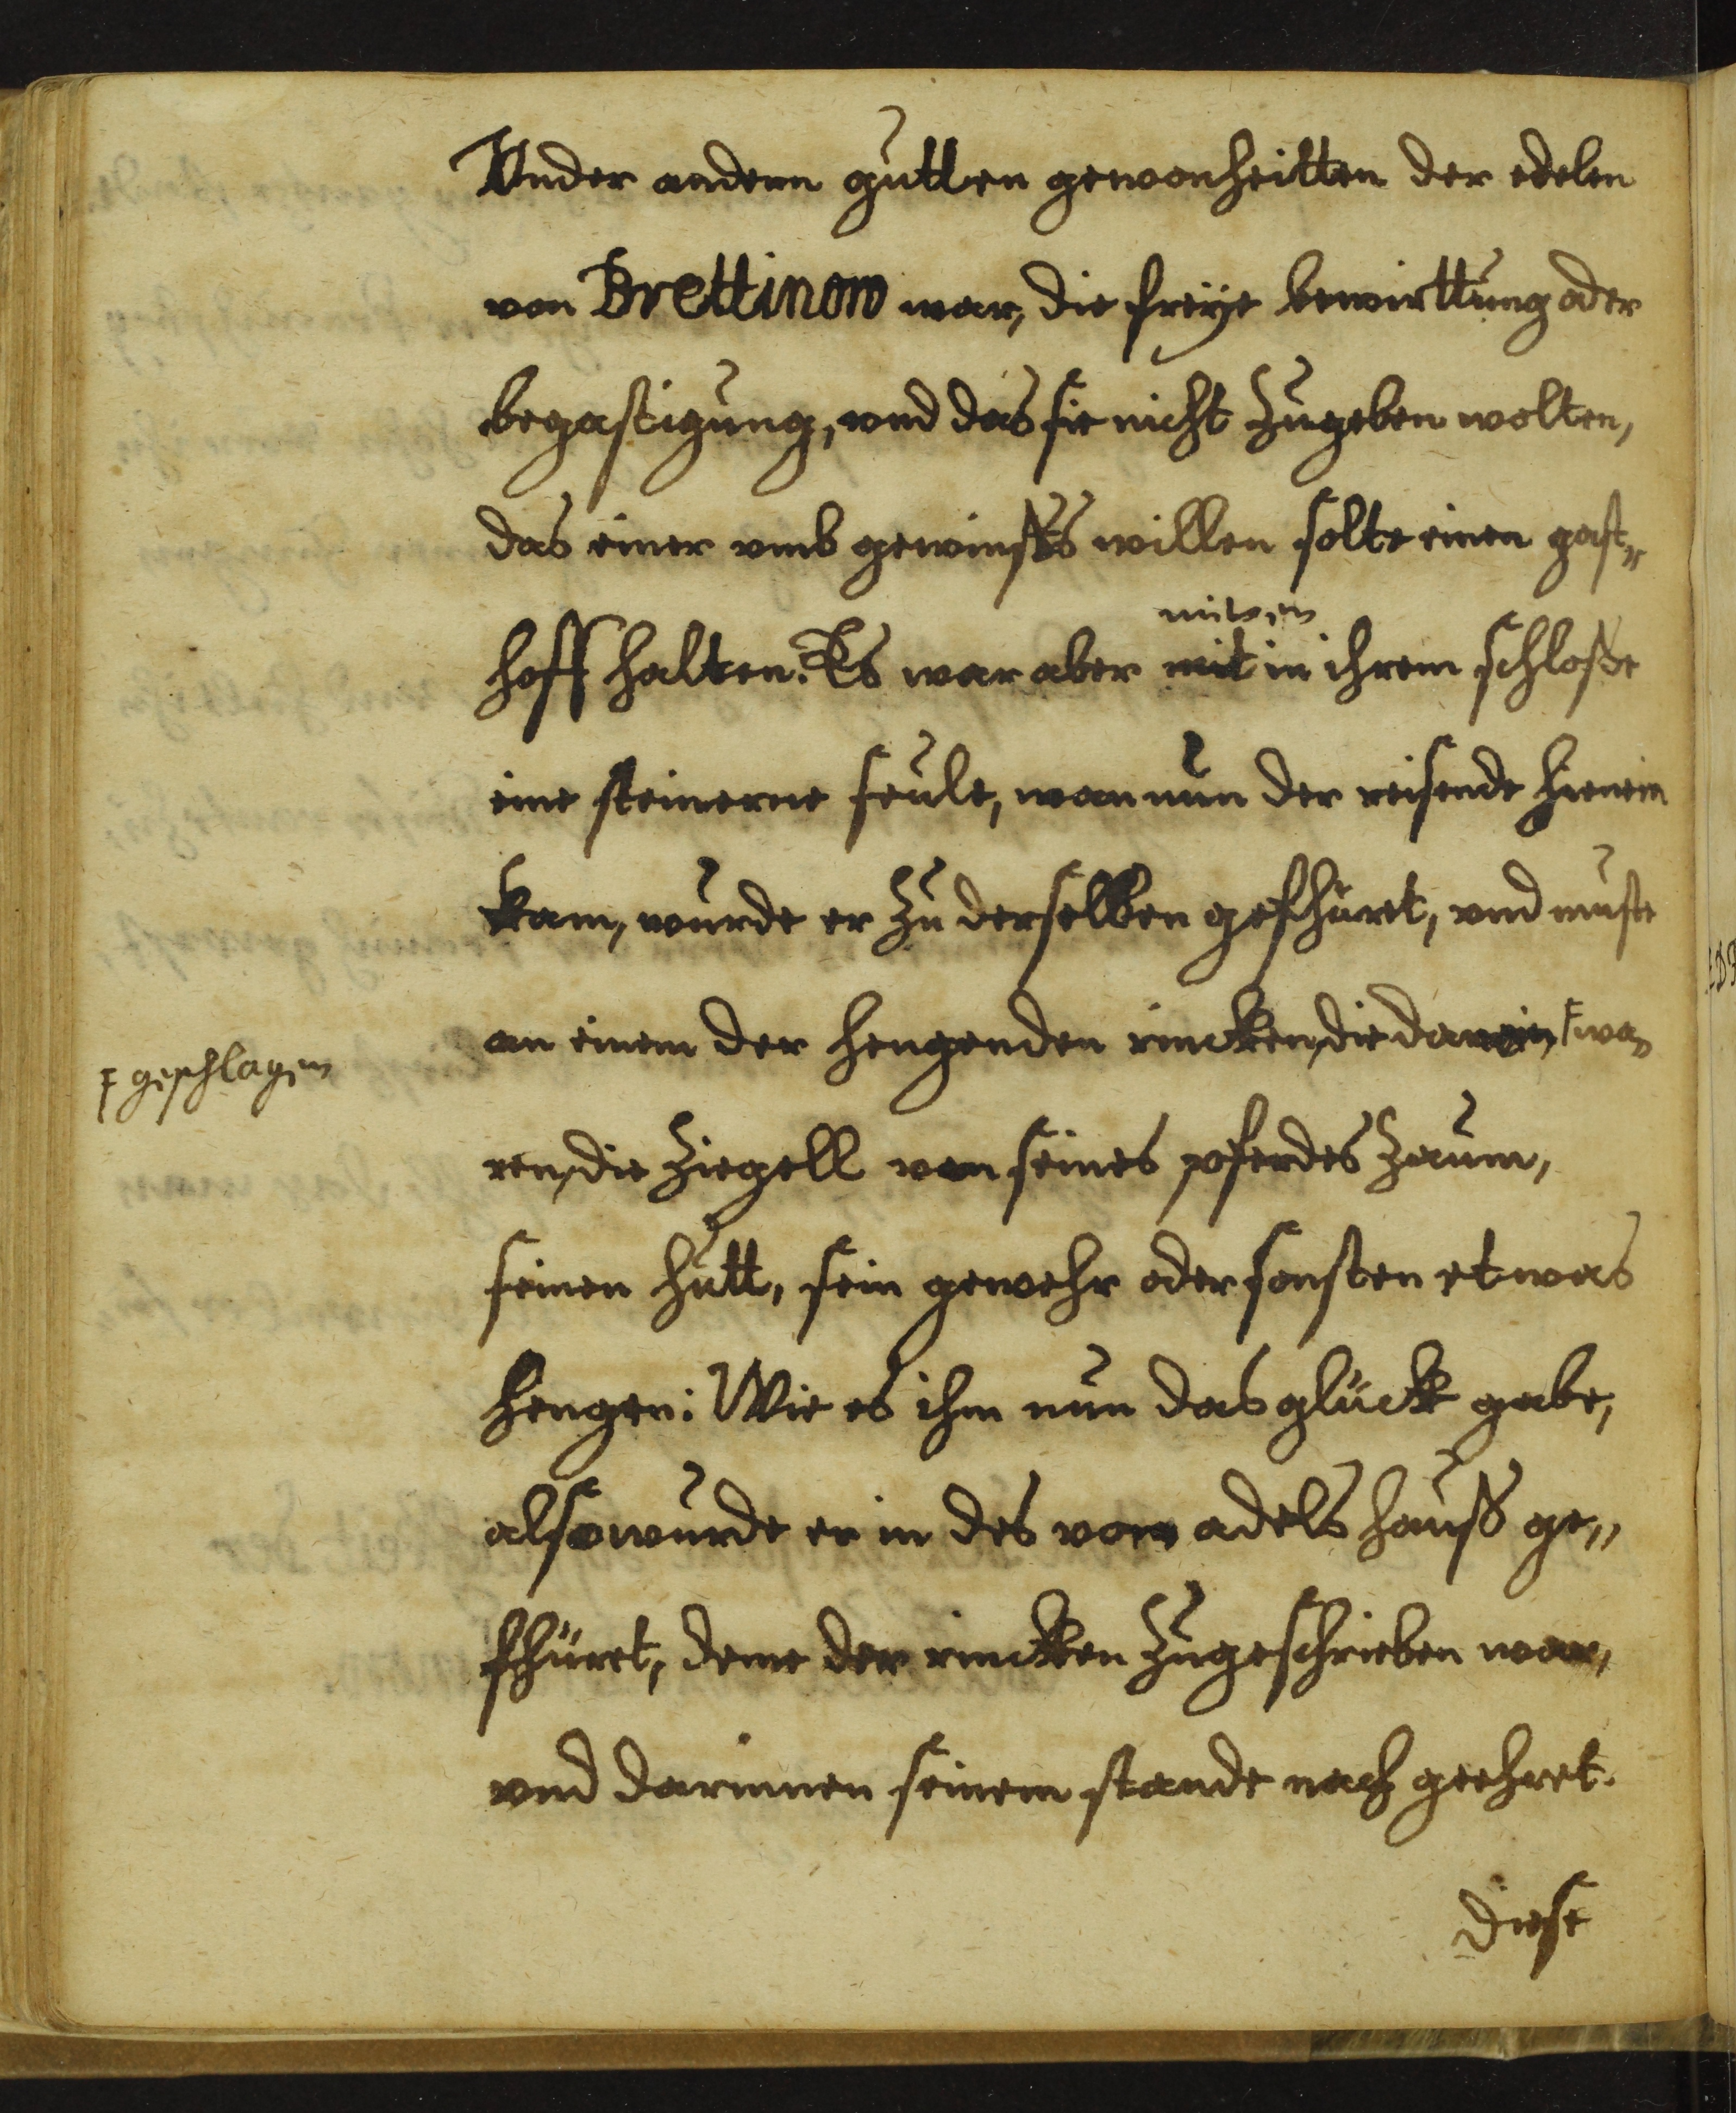 Vnder andern gutten gewonheitten der edelen
von Brettinoro war, die freÿe bewirttung oder
begastigung, vnd das sie nicht zugeben wolten,
das einer vmb gewinstes willen solte einen gast„
hoff halten. Es war aber mitten in ihrem schloße
eine steinerne seule, wan nun der reisende hienein
kam, wurde er zu derselben gefhüret, vnd muste
an einem der hengenden rincken, die darein Ŧ wa„
Ŧ geschlagen
ren, die ziegell von seines pferdes zaum,
seinen hutt, sein gewehr oder sonsten etwas
hengen: Wie es ihm nun das glück gabe,
also wurde er in des vom adels hauß ge„
fhüret, deme der rincken zugeschrieben war,
vnd darinnen seinem stande nach geehret.
Diese